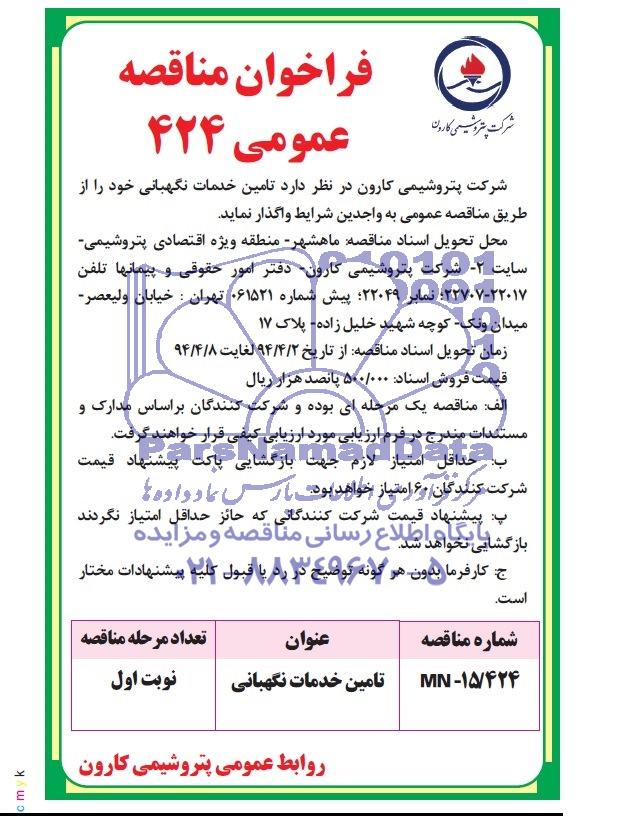 شرکت پتروشیمی کارون
فراخوان مناقصه
عمومی ۴۲۴
شرکت پتروشیمی کارون در نظر دارد تامین خدمات نگهبانی خود را از
طریق مناقصه عمومی به واجدین شرایط واگذار نماید.
محل تحویل اسناد مناقصه: ماهشهر- منطقه ویژه اقتصادی پتروشیمی-
سایت ۲- شرکت پتروشیمی کارون- دفتر امور حقوقی و پیمانها تلفن
۲۲۷۰۷-۲۲۰۱۷؛ نمابر ۲۲۰۴۹؛ پیش شماره ۰۶۱۵۲۱ تهران : خیابان ولیعصر-
میدان ونک- کوچه شهید خلیل زاده- پلاک ۱۷
زمان تحویل اسناد مناقصه: از تاریخ ۹۴/۴/۲ لغایت ۹۴/۴/۸
قیمت فروش اسناد: ۵۰۰/۰۰۰ پانصد هزار ریال
الف: مناقصه یک مرحله ای بوده و شرکت کنندگان براساس مدارک و
مستندات مندرج در فرم ارزیابی مورد ارزیابی کیفی قرار خواهند گرفت.
ParsNamadData
ب: حداقل امتیاز لازم جهت بازگشایی پاکت پیشنهاد قیمت
شرکت کنندگان ۶۰ امتیاز خواهد بود.
مرکز فرآوری اطلاعات پارس نماد داده ها
پ: پیشنهاد قیمت شرکت کنندگانی که حائز حداقل امتیاز نگردند
پایگاه اطلاع رسانی مناقصه و مزایده
بازگشایی نخواهد شد.
۰۲۱-۸۸۳۴۹۶۷۰-۵
ج: کارفرما بدون هر گونه توضیح در رد یا قبول کلیه پیشنهادات مختار
است.
شماره مناقصه عنوان تعداد مرحله مناقصه
MN -۱۵/۴۲۴ تامین خدمات نگهبانی نوبت اول
روابط عمومی پتروشیمی کارون
c m y k